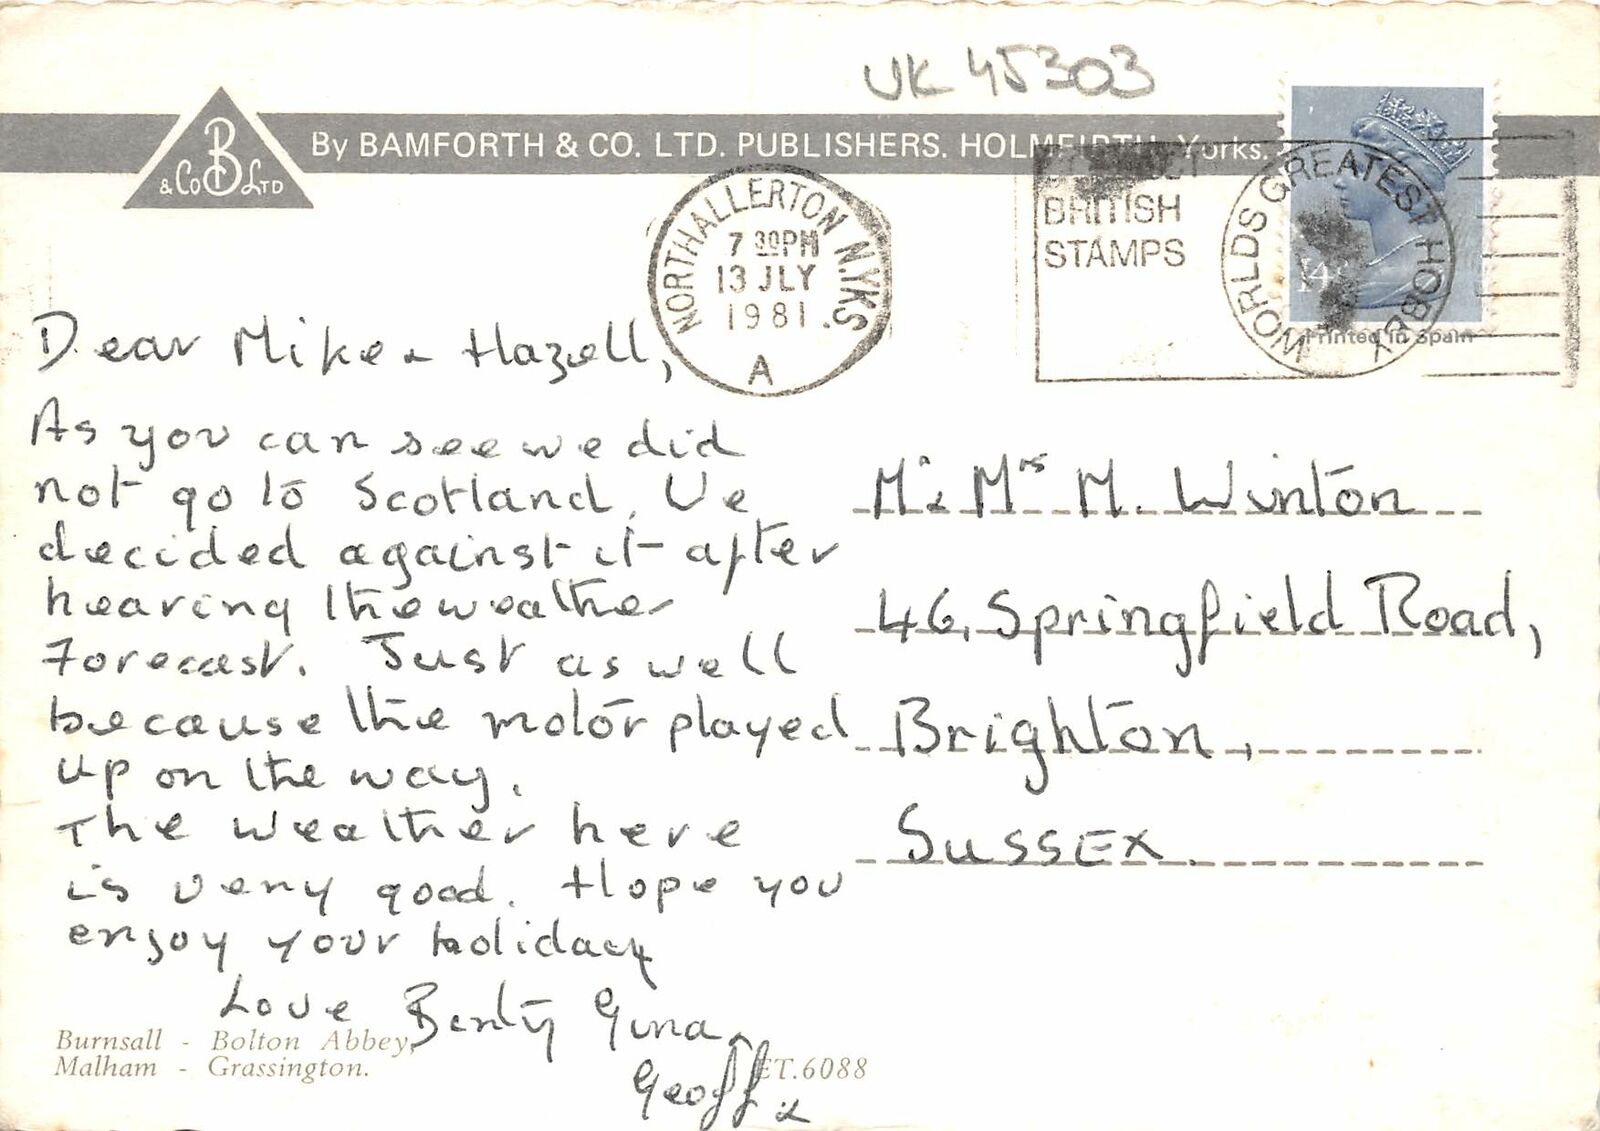 UK 45303
B
& Co Ltd
By BAMFORTH & CO. LTD. PUBLISHERS. HOLMFIRTH. Yorks.
NORTHALLERTON N.YKS.
7 30PM
13 JLY
1981
A
BRITISH
STAMPS
WORLDS GREATEST HOBBY
14
Printed in Spain
Dear Mike & Hazell,
As you can see we did
not go to Scotland. We
decided against it after
hearing the weather
forecast. Just as well
because the motor played
up on the way.
The weather here
is very good. Hope you
enjoy your holiday
Love Genty Gina
Geoff x
Mr & Mrs M. Winton
46, Springfield Road,
Brighton,
SUSSEX.
Burnsall - Bolton Abbey,
Malham - Grassington.
ET.6088